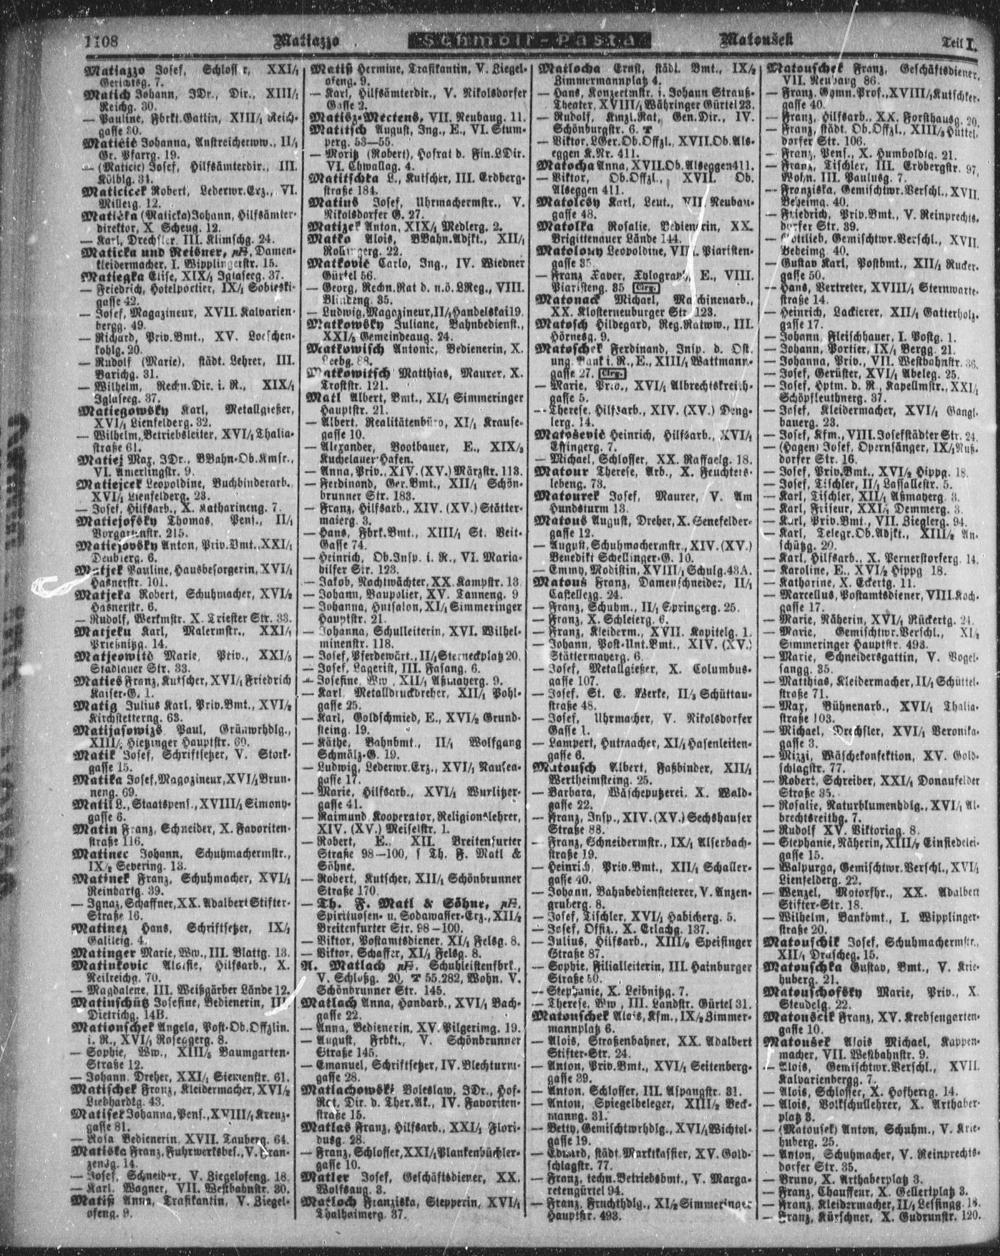 1108 Matiazzo Schmoll-Pasta Matoušek Teil I.
Matiazzo Josef, XXI/1
Gerichtsg. 7.
Matich Johann, JDr., Dir., XIII/1
Reichg. 30.
— Pauline, Fbrkt.Gattin, XIII/1 Reich-
gasse 30.
Maticic Johanna, Anstreicherww., II/1
Gr. Pfarrg. 19.
— (Maticie) Josef, Hilfsämterdir., III.
Kölblg. 31.
Maticicek Robert, Lederwr.Erz., VI.
Millerg. 12.
Maticka (Maticka) Johann, Hilfsämter-
direktor, X. Scheug. 12.
— Karl, Drechsler, III. Klimschg. 24.
Maticka und Reißner, Damen-
kleidermacher, I. Wipplingerstr. 15.
Matiegka Luise, XIX/1 Iglaseeg. 37.
— Friedrich, Hotelportier, IX/1 Sobieski-
gasse 42.
— Josef, Magazineur, XVII. Kalvarien-
bergg. 49.
— Richard, Priv.Bmt., XV. Loeschen-
kohlg. 20.
— Rudolf (Marie), städt. Lehrer, III.
Barichg. 31.
— Wilhelm, Rechn.Dir. i. R., XIX/1
Iglaseeg. 37.
Matiegowsky Karl, Metallgießer,
XVI/1 Lienfelderg. 32.
— Wilhelm, Betriebsleiter, XVI/1 Thalia-
straße 61.
Matiej Max, JDr., BBahn-Ob.Kmsr.,
VI. Amerlingstr. 9.
Matiejcek Leopoldine, Buchbinderarb.,
XVI/1 Lienfelderg. 23.
— Josef, Hilfsarb., X. Katharineng. 7.
Matiejofsky Thomas, Pens., II/1
Vorgartenstr. 215.
Matiejovsky Anton, Priv.Bmt., XXI/1
Deublerg. 6.
Matjek Pauline, Hausbesorgerin, XVI/1
Hasnerstr. 101.
Matjeka Robert, Schuhmacher, XVI/2
Hasnerstr. 6.
— Rudolf, Werkmstr. X. Triester Str. 33.
Matjeku Karl, Malermstr., XXI/1
Prießnitzg. 14.
Matjeowic Marie, Priv., XXI/5
Stadlauer Str. 33.
Maties Franz, Kutscher, XVI/1 Friedrich
Kaiser-G. 1.
Matig Julius Karl, Priv.Bmt., XVI/2
Kirchstetterng. 63.
Matijasowizs Paul, Grünwrhdlg.,
XIII/1 Hietzinger Hauptstr. 60.
Matik Josef, Schriftsetzer, V. Stolk-
gasse 15.
Matika Josef, Magazineur, XVI/1 Brun-
neng. 69.
Matil L., Staatspens., XVIII/1 Simony-
gasse 6.
Matin Franz, Schneider, X. Favoriten-
straße 116.
Matinec Johann, Schuhmachermstr.,
IX/2 Severing. 13.
Matinek Franz, Schuhmacher, XVI/1
Reinhartg. 39.
— Ignaz, Schaffner, XX. Adalbert Stifter-
Straße 16.
Matinez Hans, Schriftsetzer, IX/1
Galileig. 4.
Matinger Marie, Ww., III. Blattg. 13.
Matinkovic Aloisie, Hilfsarb., X.
Reilreichg. 70.
— Magdalene, III. Weißgärber Lände 12.
Matinschütz Josefine, Bedienerin, III.
Dietrichg. 14B.
Mationschek Angela, Post-Ob.Offzlin.
i. R., XVI/1 Roseggerg. 8.
— Sophie, Ww., XIII/5 Baumgarten-
Straße 12.
— Johann, Dreher, XXI/1 Siemenstr. 61.
Matischek Franz, Kleidermacher, XVI/2
Liebhartsg. 43.
Matisek Johanna, Pens., XVIII/1 Kreuz-
gasse 81.
— Rosa Bedienerin, XVII. Tauberg. 64.
Matiska Franz, Fuhrwerksbes., V. Fran-
zensg. 14.
— Josef, Schneider, V. Ziegelofeng. 18.
— Karl, Wagner, VII. Westbahnstr. 30.
Matiß Anna, Trafikantin, V. Ziegel-
ofeng. 9.
Matiß Hermine, Trafikantin, V. Ziegel-
ofeng. 9.
— Karl, Hilfsämterdir., V. Nikolsdorfer
Gasse 2.
Matisz-Mectens, VII. Neubaug. 11.
Matitsch August, Ing., E., VI. Stum-
perg. 53—55.
— Moritz (Robert), Hofrat d. Fin.L.Dir.
VI. Chwallag. 4.
Matitschka L., Kutscher, III. Erdberg-
straße 184.
Matius Josef, Uhrmachermstr., V.
Nikolsdorfer G. 27.
Matizek Anton, XIX/1 Medlerg. 2.
Matko Alois, BBahn.Adjkt., XII/1
22.
Matkovic Carlo, Ing., IV. Wiedner
Gürtel 56.
— Georg, Rechn.Rat d. n.ö. LReg., VIII.
Blindeng. 35.
— Ludwig, Magazineur, II/1 Handelskai 19.
Matkowsky Juliane, Bahnbedienst.,
XXI/2 Gemeindeaug. 24.
Matkowisch Antonie, Bedienerin, X.
Matkowitsch Matthias, Maurer, X.
Troststr. 121.
Matl Albert, Bmt., XI/1 Simmeringer
Hauptstr. 21.
— Albert, Realitätenbüro, XI/1 Krause-
gasse 10.
— Alexander, Bootbauer, E., XIX/2
Kuchelauer Hafen.
— Anna, Priv., XIV. (XV.) Märzstr. 113.
— Ferdinand, Ger.Bmt., XII/1 Schön-
brunner Str. 183.
— Franz, Hilfsarb., XIV. (XV.) Stätter-
mayerg. 3.
— Hans, Fbrk.Bmt., XIII/1 St. Veit-
Gasse 74.
— Heinrich, Ob.Insp. i. R., VI. Maria-
hilfer Str. 123.
— Jakob, Nachtwächter, XX. Kampstr. 13.
— Johann, Baupolier, XV. Tanneng. 9.
— Johanna, Hutsalon, XI/1 Simmeringer
Hauptstr. 21.
— Johanna, Schulleiterin, XVI. Wilhel-
minenstr. 118.
— Josef, Pferdewärt., II/1 Sterneckplatz 20.
— Josef, Lagerist, III. Fasang. 6.
— Josefine, Ww., XII/1 Aßmayerg. 9.
— Karl, Metalldruckdreher, XII/1 Pohl-
gasse 25.
— Karl, Goldschmied, E., XVI/2 Grund-
steing. 19.
— Käthe, Bahnbmt., II/1 Wolfgang
Schmälzl-G. 19.
— Ludwig, Lederwr.Erz., XVI/1 Nausea-
gasse 17.
— Marie, Hilfsarb., XVI/1 Wurlitzer-
gasse 41.
— Raimund, Kooperator, Religionslehrer,
XIV. (XV.) Meiselstr. 1.
— Robert, E., XII. Breitenfurter
Straße 98—100, s. Th. F. Matl &
Söhne.
— Robert, Kutscher, XII/1 Schönbrunner
Straße 170.
— Th. F. Matl & Söhne,
Spirituosen- u. Sodawasser-Erz., XII/2
Breitenfurter Str. 98—100.
— Viktor, Postamtsdiener, XI/1 Felsg. 8.
— Viktor, Schaffer, XI/1 Felsg. 8.
A. Matlach Schuhleistenfbrk.,
V. Schloßg. 20, 55.282, Wohn. V.
Schönbrunner Str. 145.
Matlach Anna, Handarb., XVI/1 Bach-
gasse 22.
— Anna, Bedienerin, XV. Pilgerimg. 19.
— August, Frbkt., V. Schönbrunner
Straße 145.
— Emanuel, Schriftsetzer, IV. Blechturm-
gasse 28.
Matlachowski Boleslaw, JDr., Hof-
Rat, Dir. d. Ther.Ak., IV. Favoriten-
straße 15.
Matlas Franz, Hilfsarb., XXI/1 Flori-
dusg. 28.
— Franz, Schlosser, XXI/1 Plankenbüchler-
gasse 10.
Matler Josef, Geschäftsdiener, XX.
Wolfsaug. 3.
Matloch Franziska, Stepperin, XVI/1
Thalhaimerg. 37.
Matlocha Ernst, städt. Bmt., IX/2
Zimmermannplatz 4.
— Hans, Konzertmstr. i. Johann Strauß-
Theater, XVIII/1 Währinger Gürtel 23.
— Rudolf, Knzl.Rat, Gen.Dir., IV.
Schönburgstr. 6.
— Viktor, LGer.Ob.Offzl. XVII. Ob. Als-
eggen K.Nr. 411.
Matocha Anna, XVII. Ob. Alseggen 411.
— Viktor, Ob.Offzl., XVII. Ob.
Alseggen 411.
Matolcsy Karl, Leut., VII. Neubau-
gasse 48.
Matolka Rosalie, Bedienerin, XX.
Brigittenauer Lände 144.
Matolony Leopoldine, VIII. Piaristen-
gasse 35.
— Franz Xaver, Xylograph, E., VIII.
Piaristeng. 35
Matonack Michael, Maschinenarb.,
XX. Klosterneuburger Str. 123.
Matosch Hildegard, Reg.Ratww., III.
Hörnesg. 9.
Matoschek Ferdinand, Insp. d. Öst.
ung. Bank i. R., E., XIII/1 Wattmann-
gasse 27.
— Marie, XVI/1 Albrechtskreith-
gasse 5.
— Therese, Hilfsarb., XIV. (XV.) Deng-
lerg. 14.
Matošević Heinrich, Hilfsarb., XVI/1
Effingerg. 7.
— Michael, Schlosser, XX. Raffaelg. 18.
Matour Therese, Arb., X. Feuchters-
lebeng. 73.
Matourek Josef, Maurer, V. Am
Hundsturm 13.
Matous August, Dreher, X. Senefelder-
gasse 12.
— August, Schuhmachermstr., XIV. (XV.)
Benedikt Schellinger-G. 16.
— Emmy, Modistin, XVIII/1 Schulg. 43A.
Matouš Franz, Damenschneider, II/1
Castellezg. 24.
— Franz, Schuhm., II/1 Springerg. 25.
— Franz, X. Schleierg. 6.
— Franz, Kleiderm., XVII. Kapitelg. 1.
— Johann, Post-Unt.Bmt., XIV. (XV.)
Stättermayerg. 6.
— Josef, Metallgießer, X. Columbus-
gasse 107.
— Josef, St. E. Werke, II/2 Schüttau-
straße 48.
— Josef, Uhrmacher, V. Nikolsdorfer
Gasse 1.
— Lampert, Hutmacher, XI/1 Hasenleiten-
gasse 6.
Matousch Albert, Faßbinder, XII/2
Wertheimsteing. 25.
— Barbara, Wäscheputzerei, X. Wald-
gasse 22.
— Franz, Insp., XIV. (XV.) Sechshauser
Straße 88.
— Franz, Schneidermstr., IX/1 Alserbach-
straße 19.
— Heinrich, Priv.Bmt., XII/1 Schaller-
gasse 40.
— Johann, Bahnbediensteter, V. Anzen-
gruberg. 8.
— Josef, Tischler, XVI/1 Habicherg. 5.
— Josef, Offiz., X. Erlachg. 137.
— Julius, Hilfsarb., XIII/2 Speisinger
Straße 87.
— Sophie, Filialleiterin, III. Hainburger
Straße 50.
— Stephanie, X. Leibnitzg. 7.
— Therese, Ww., III. Landstr. Gürtel 31.
Matouschek Alois, Kfm., IX/2 Zimmer-
mannplatz 6.
— Alois, Straßenbahner, XX. Adalbert
Stifter-Str. 24.
— Anton, Priv.Bmt., XVI/1 Seitenberg-
gasse 39.
— Anton, Schlosser, III. Aspangstr. 31.
— Anton, Spiegelbeleger, XIII/2 Beck-
manng. 31.
— Betty, Gemischtwrhdlg., XVI/1 Wichtel-
gasse 19.
— Eduard, städt. Marktkassier, XV. Gold-
schlagstr. 77.
— Franz, techn. Betriebsbmt., V. Marga-
retengürtel 94.
— Franz, Fruchthdlg., XI/2 Simmeringer
Hauptstr. 493.
Matouschek Franz, Geschäftsdiener,
VII. Neubaug 86.
— Franz, Gymn.Prof., XVIII/1 Kutschker-
gasse 40.
— Franz, Hilfsarb., XX. Forsthausg. 20.
— Franz, städt. Ob.Offzl., XIII/2 Hüttel-
dorfer Str. 106.
— Franz, Pens., X. Humboldtg. 21.
— Franz, Tischler, III. Erdbergstr. 97,
Wohn. III. Paulusg. 7.
— Franziska, Gemischtwr.Verschl., XVII.
Beheimg. 40.
— Friedrich, Priv.Bmt., V. Reinprechts-
dorfer Str. 39.
— Gottlieb, Gemischtwr.Verschl., XVII.
Beheimg. 40.
— Gustav, Post.Amtsdiener, XII/2 Rucker-
gasse 50.
— Hans, Vertreter, XVIII/1 Sternwarte-
straße 14.
— Heinrich, Lackierer, XII/1 Gatterholz-
gasse 17.
— Johann, Fleischhauer, I. Postg. 1.
— Johann, Portier, IX/1 Bergg. 21.
— Johanna, Priv., VII. Westbahnstr. 36.
— Josef, Gerüster, XVI/1 Abeleg. 25.
— Josef, Hptm. d. R., Kapellmstr., XXI/1
Schöpfleuthnerg. 37.
— Josef, Kleidermacher, XVI/1 Gangl-
bauerg. 23.
— Josef, Kfm., VIII. Josefstädter Str. 24.
— (Hagen) Josef, Opernsänger, IX/2 Nuß-
dorfer Str. 16.
— Josef, Priv.Bmt., XVI/2 Hippg. 18.
— Josef, Tischler, II/1 Lassallestr. 5.
— Karl, Tischler, XII/1 Aßmayerg. 3.
— Karl, Friseur, XXI/1 Demmerg. 3.
— Karl, Priv.Bmt., VII. Zieglerg. 94.
— Karl, Telegr.Ob.Adjkt., XIII/2 An-
schützg. 20.
— Karl, Hilfsarb., X. Pernerstorferg. 14.
— Karoline, E., XVI/2 Hippg. 18.
— Katharine, X. Eckertg. 11.
— Marcellus, Postamtsdiener, VIII. Koch-
gasse 17.
— Marie, Näherin, XVI/1 Rückertg. 24.
— Marie, Gemischtwr.Verschl., XI/2
Simmeringer Hauptstr. 493.
— Marie, Schneidersgattin, V. Vogel-
sangg. 35.
— Matthias, Kleidermacher, II/1 Schüttel-
straße 71.
— Max, Bühnenarb., XVI/1 Thalia-
straße 103.
— Michael, Drechsler, XVI/1 Veronika-
gasse 3.
— Mizzi, Wäschekonfektion, XV. Gold-
schlagstr. 77.
— Robert, Schreiber, XXI/1 Donaufelder
Straße 35.
— Rosalie, Naturblumenhdlg., XVI/1 Al-
brechtsreithg. 7.
— Rudolf, XV. Viktoriag. 8.
— Stephanie, Näherin, XIII/2 Einsiedelei-
gasse 15.
— Walpurga, Gemischtwr.Verschl., XVI/1
Lienfelderg. 22.
— Wenzel, Motorfhr., XX. Adalbert
Stifter-Str. 18.
— Wilhelm, Bankbmt., I. Wipplinger-
straße 20.
Matouschik Josef, Schuhmachermstr.,
XII/1 Drascheg. 15.
Matouschka Gustav, Bmt., V. Krie-
huberg. 21.
Matouschofsky Marie, Priv., X.
Steudelg. 22.
Matouscik Franz, XV. Krebsengarten-
gasse 10.
Matoušek Alois Michael, Kappen-
macher, VII. Westbahnstr. 9.
— Alois, Gemischtwr.Verschl., XVII.
Kalvarienbergg. 7.
— Alois, Schlosser, X. Hofherrg. 14.
— Alois, Volksschullehrer, X. Arthaber-
platz 3.
— (Matousek) Anton, Schuhm., V. Krie-
huberg. 25.
— Anton, Schuhmacher, V. Reinprechts-
dorfer Str. 35.
— Bruno, X. Arthaberplatz 3.
— Franz, Chauffeur, X. Gellertplatz 3.
— Franz, Kleidermacher, II/1 Lessingg. 18.
— Franz, Kürschner, X. Gudrunstr. 120.